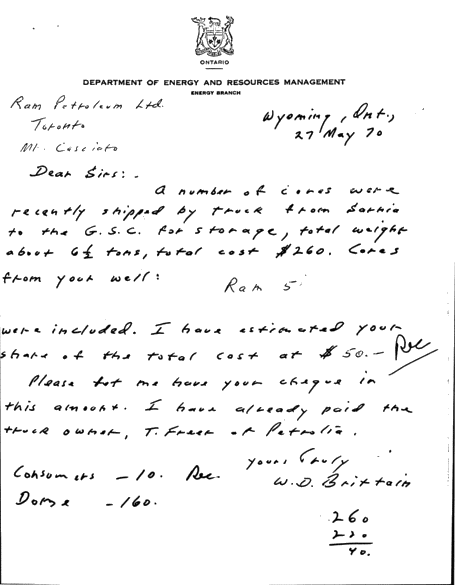 ONTARIO
DEPARTMENT OF ENERGY AND RESOURCES MANAGEMENT
ENERGY BRANCH
Ram Petroleum Ltd.
Toronto
Mr. Casciato
Wyoming, Ont.,
27 May 70
Dear Sirs:-
A number of cores were
recently shipped by truck from Sarnia
to the G.S.C. for storage, total weight
about 6½ tons, total cost $260. Cores
from your well:
Ram 5
were included. I have estimated your
share of the total cost at $50.- Rec
Please let me have your cheque in
this amount. I have already paid the
truck owner, T. Freer of Petrolia.
Yours Truly
W.D. Brittain
Consumers - 10. Rec.
Dome - 160.
260
220
40.